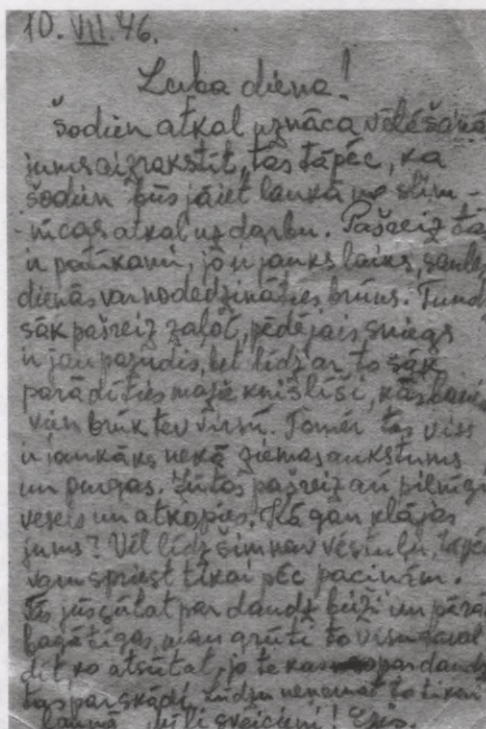 10. VII. 46.
Laba diena!
Šodien atkal uznāca vēlēšanā
jums aizrakstīt, tas tāpēc, ka
šodien būs jāiet laukā no slim-
nīcas atkal uz darbu. Pašreiz tas
ir patīkami, jo ir jauks laiks, saules
dienās var nodedzināties brūns. Tund
sāk pašreiz zaļot, pēdējais sniegs
ir jau pazudis, bet līdz ar to sāk
parādīties mazie knišlīši, kas
vien brūk tev virsū. Tomēr tas viss
ir jaukāks nekā ziemas aukstums
un purgas. Jūtos pašreiz arī pilnīgi
vesels un atkopies. Kā gan klājas
jums? Vēl līdz šim nav vēstuļu, tapēc
varu spriest tikai pēc paciņām.
Tās jūs sūtat par daudz bieži un pārāk
bagātīgas, man grūti to visu
ko atsūtat, jo te kas par daudz
tas par skādi. Lūdzu neņemat to tikai
launā. Mīļi sveicieni! Egis.